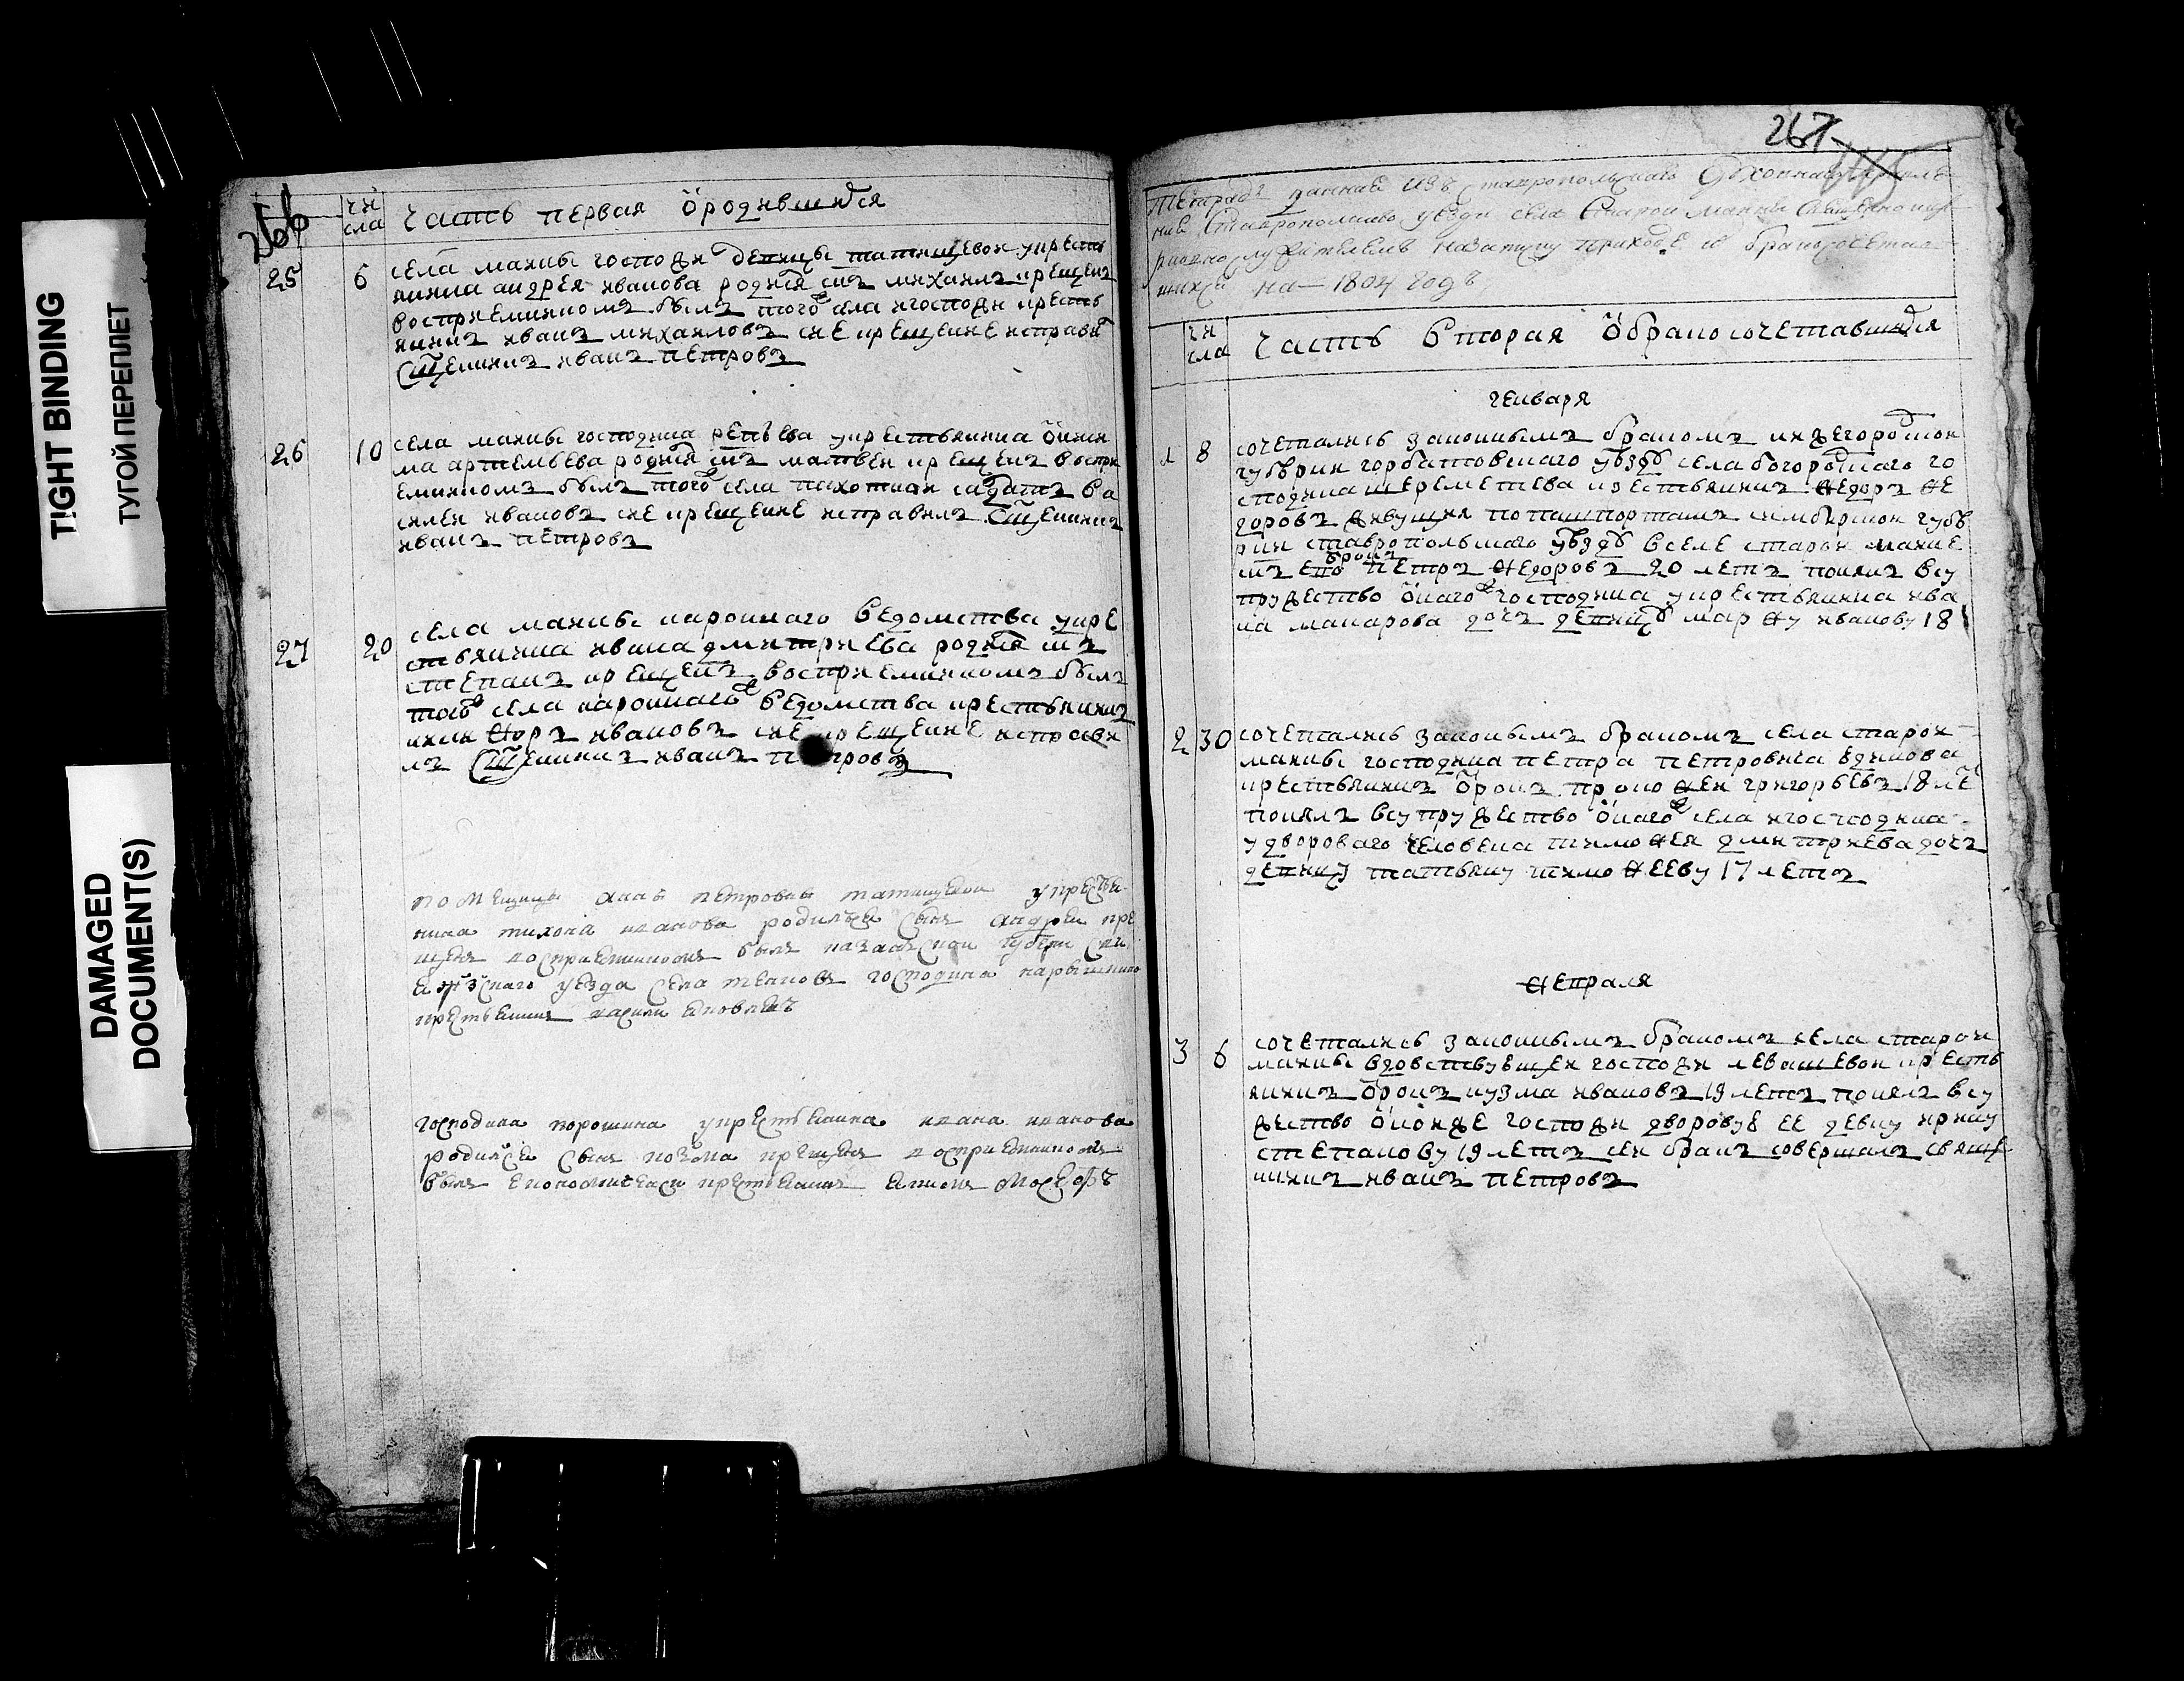 TIGHT BINDING
ТУГОЙ ПЕРЕПЛЕТ
DAMAGED
DOCUMENT(S)
266
чи
сла
часть первая о родившихся
25 6 села маины госпожи девицы татищевой у кресть
янина андрея иванова родился сын михаил крещен
восприемником был того села и госпожи кресть
янин иван михаилов сие крещение исправил
священник иван петров
26 10 села маины господина репьева у крестьянина
ма артемьева родился сын матвей крещен воспри
емником был того села пахотной салдат ва
силей иванов сие крещение исправил священник
иван петров
27 20 села маины коронного ведомства у кре
стьянина ивана дмитриева родился сын
степан крещен восприемником был
того села коронного ведомства крестьянин
иванов сие крещение исправи
л священник иван петров
помещицы анны петровны татищевой у крестья
нина тихона иванова родился сын андрей кре
щен восприемником был казанской губерни
уезда села господина нарышкина
крестьянин
господина порошина у крестьянина ивана иванова
родился сын козма крещен восприемником
был крестьянин
267
тетрадь данная изъ ставропольскаго духовнаго
ния ставропольского уезда села старой маины священно и цер
ковно служителемъ на записку приходе о бракосочетав
шихся на 1804 годъ
чи
сла
часть вторая о бракосочетавшихся
генваря
1 8 сочетались законным браком нижегородской
губернии горбатовскаго уезда села богородскаго го
сподина шереметева крестьянин ѳедор ѳе
доров живущия по пашпортам симбирской губе
рнии ставропольскаго уезда в селе старой маине
сын его
отрок
петр ѳедоров 20 лет понял в су
пружество онаго ж господина у крестьянина ива
на макарова дочь девицу марѳу иванову 18
2 30 сочетались законным браком села старой
маины господина петра петровича
крестьянин отрок прокоѳей григорьев 18 ле
понял в супружество онаго ж села и господина
у двороваго человека тимоѳея дмитриева дочь
девицу татьяну тимоѳееву 17 лет
ѳевраля
3 6 сочетались законным браком села старой
маины вдовствующей госпожи левашевой кресть
янин отрок кузма иванов 19 лет понял в су
жество оной же госпожи дворовую ее девку ирину
степанову 19 лет сей брак совершал свяще
нник иван петров